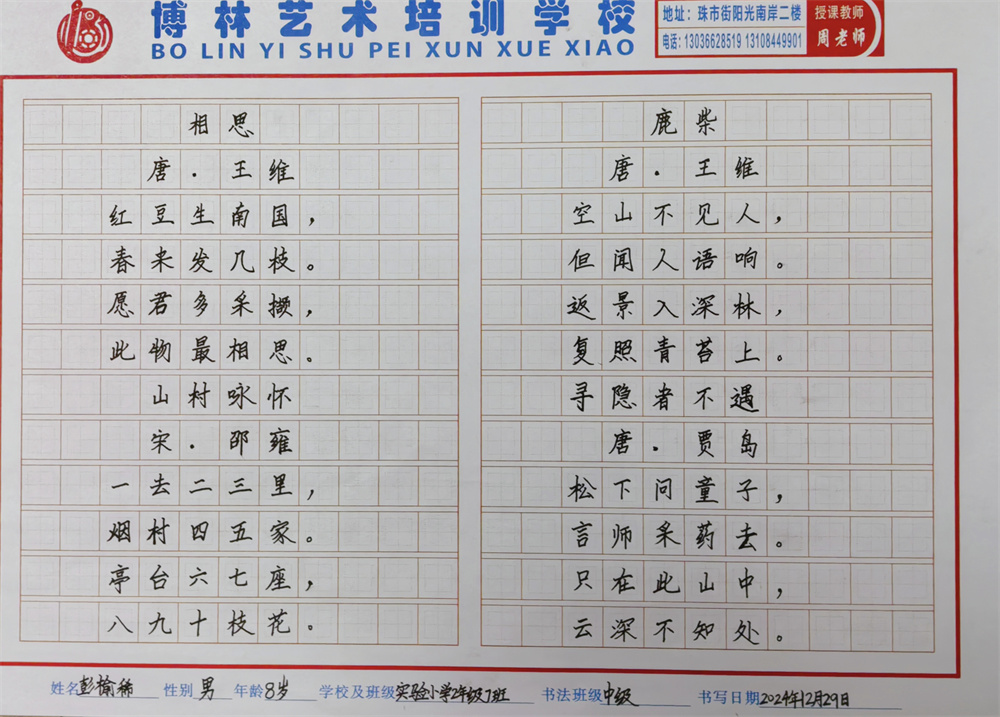 博林艺术培训学校
BO LIN YI SHU PEI XUN XUE XIAO
地址：珠市街阳光南岸二楼
电话：13036628519 13108449901
授课教师
周老师
相思
唐．王维
红豆生南国，
春来发几枝。
愿君多采撷，
此物最相思。
山村咏怀
宋．邵雍
一去二三里，
烟村四五家。
亭台六七座，
八九十枝花。
鹿柴
唐．王维
空山不见人，
但闻人语响。
返景入深林，
复照青苔上。
寻隐者不遇
唐．贾岛
松下问童子，
言师采药去。
只在此山中，
云深不知处。
姓名 彭榆稀 性别 男 年龄 8岁 学校及班级 实验小学2年级7班 书法班级 中级 书写日期 2024年12月29日